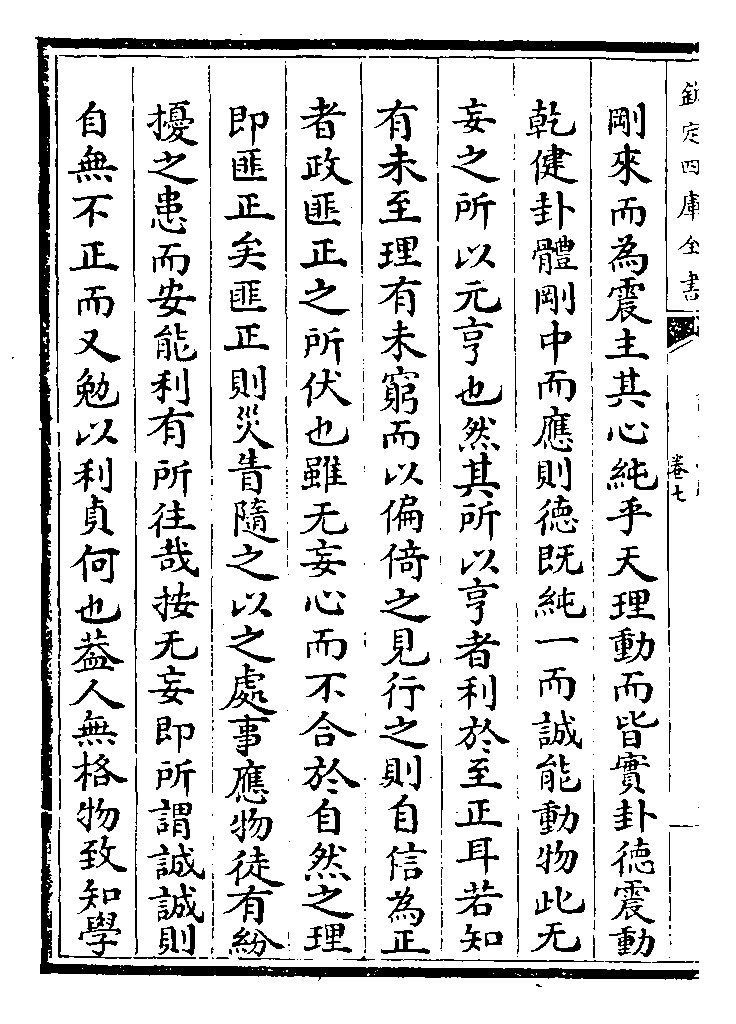 欽定四庫全書
卷七
剛來而為震主其心純乎天理動而皆實卦徳震動
乾健卦體剛中而應則徳既純一而誠能動物此无
妄之所以元亨也然其所以亨者利於至正耳若知
有未至理有未窮而以偏倚之見行之則自信為正
者政匪正之所伏也雖无妄心而不合於自然之理
即匪正矣匪正則災眚隨之以之處事應物徒有紛
擾之患而安能利有所往哉按无妄即所謂誠誠則
自無不正而又勉以利貞何也葢人無格物致知學